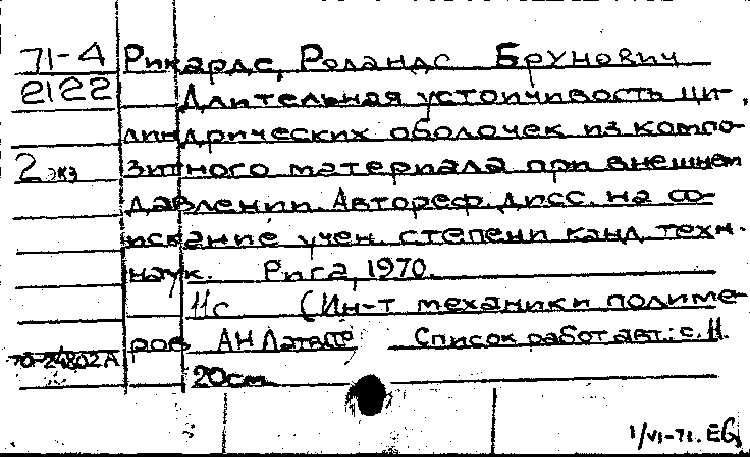 71-4 Рикардс, Роландс Брунович
2122 Длительная устойчивость ци-
линдрических оболочек из компо-
2 экз зитного материала при внешнем
давлении. Автореф. дисс. на со-
искание учен. степени канд. техн.
наук. Рига, 1970.
11с (Ин-т механики полиме-
ров АН Латв. Список работ авт.: с. 11.
70-24802А
20см.
1/VI-71.